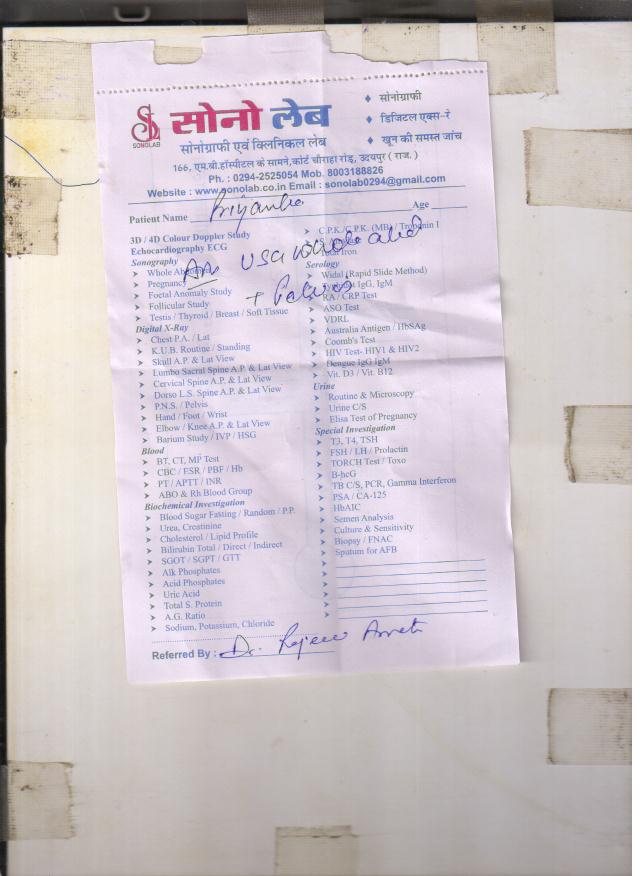 सोनो लेब
SONOLAB
♦ सोनोग्राफी
♦ डिजिटल एक्स-रे
♦ खून की समस्त जांच
सोनोग्राफी एवं क्लिनिकल लेब
166, एम.बी.हॉस्पीटल के सामने,कोर्ट चौराहा रोड़, उदयपुर ( राज. )
Ph. : 0294-2525054 Mob. 8003188826
Website : www.sonolab.co.in Email : sonolab0294@gmail.com
Patient Name Priyanka Age
USG whole abd
+ Pelvis
3D / 4D Colour Doppler Study
Echocardiography ECG
Sonography
➤ Whole Abdomen
➤ Pregnancy
➤ Foetal Anomaly Study
➤ Follicular Study
➤ Testis / Thyroid / Breast / Soft Tissue
Digital X-Ray
➤ Chest P.A. / Lat
➤ K.U.B. Routine / Standing
➤ Skull A.P. & Lat View
➤ Lumbo Sacral Spine A.P. & Lat View
➤ Cervical Spine A.P. & Lat View
➤ Dorso L.S. Spine A.P. & Lat View
➤ P.N.S. / Pelvis
➤ Hand / Foot / Wrist
➤ Elbow / Knee A.P. & Lat View
➤ Barium Study / IVP / HSG
Blood
➤ BT, CT, MP Test
➤ CBC / ESR / PBF / Hb
➤ PT / APTT / INR
➤ ABO & Rh Blood Group
Biochemical Investigation
➤ Blood Sugar Fasting / Random / P.P.
➤ Urea, Creatinine
➤ Cholesterol / Lipid Profile
➤ Bilirubin Total / Direct / Indirect
➤ SGOT / SGPT / GTT
➤ Alk Phosphates
➤ Acid Phosphates
➤ Uric Acid
➤ Total S. Protein
➤ A.G. Ratio
➤ Sodium, Potassium, Chloride
➤ C.P.K./C.P.K. (MB) / Troponin I
Iron
Serology
➤ Widal (Rapid Slide Method)
IgG, IgM
➤ RA / CRP Test
➤ ASO Test
➤ VDRL
➤ Australia Antigen / HbSAg
➤ Coomb's Test
➤ HIV Test- HIV1 & HIV2
➤ Dengue IgG IgM
➤ Vit. D3 / Vit. B12
Urine
➤ Routine & Microscopy
➤ Urine C/S
➤ Elisa Test of Pregnancy
Special Investigation
➤ T3, T4, TSH
➤ FSH / LH / Prolactin
➤ TORCH Test / Toxo
➤ B-hcG
➤ TB C/S, PCR, Gamma Interferon
➤ PSA / CA-125
➤ HbAIC
➤ Semen Analysis
➤ Culture & Sensitivity
➤ Biopsy / FNAC
➤ Sputum for AFB
Referred By : Dr.